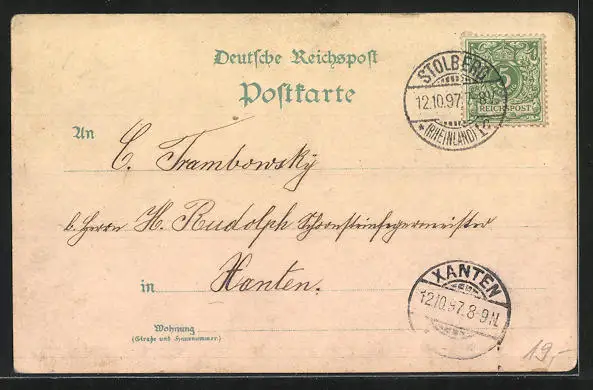 Deutsche Reichspost
Postkarte
STOLBERG
12.10.97. 7-8N.
* (RHEINLAND)
5
REICHSPOST
An
C. Trambowsky
b. Herrn H. Rudolph Schornsteinfegermeister
in Xanten.
XANTEN
12.10.97. 8-9N.
Wohnung
(Straße und Hausnummer)
19,-